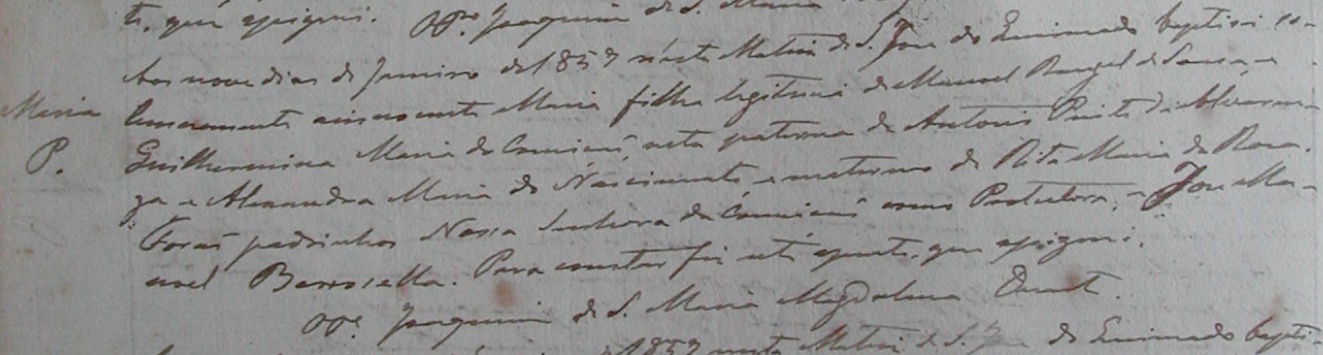 te, que assignei. O Pe. Joaquim de S. Maria
Aos nove dias de Junho de 1857 nésta Matriz de S. Jose do Queimado baptisei so-
Maria lemnemente a innocente Maria filha legitima de Manoel Rangel de Sousa, e
P. Guilhermina Maria da Conceicaõ, neta paterna de Antonio Pinto de Alvaren-
ga e Alexandra Maria do Nascimento, e materna de Rita Maria da Rosa.
Foraõ padrinhos Nossa Senhora da Conceicaõ como Protectora, e Jose Ma-
noel Barcella. Para constar fiz este assento, que assignei.
O Pe. Joaquim de S. Maria Magdalena Duarte.
1857 nesta Matriz de S. Jose do Queimado bapti-